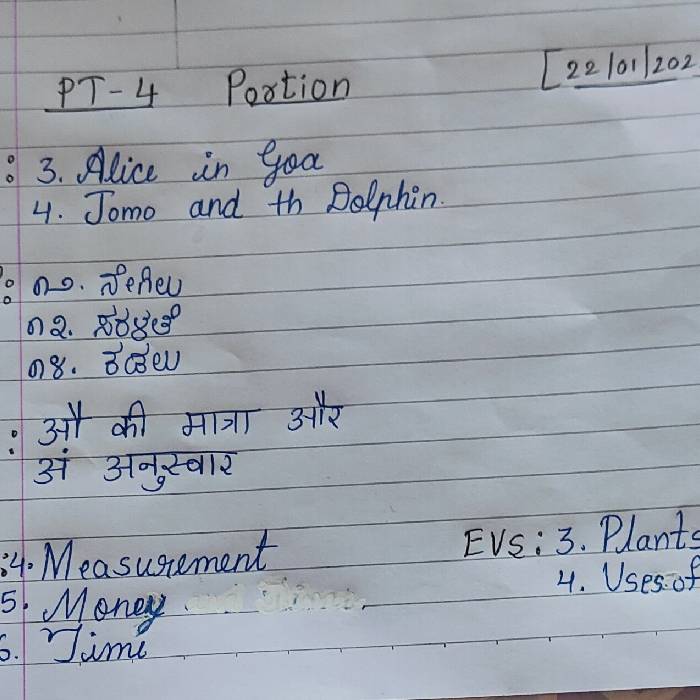 PT-4 Portion [22/01/202
: 3. Alice in Goa
4. Jomo and th Dolphin.
: ೧೨. ನೇಗಿಲು
೧೩. ಸರಳತೆ
೧೪. ಕಡಲು
: औ की मात्रा और
अं अनुस्वार
:4. Measurement EVS: 3. Plants
5. Money 4. Uses of
6. Time